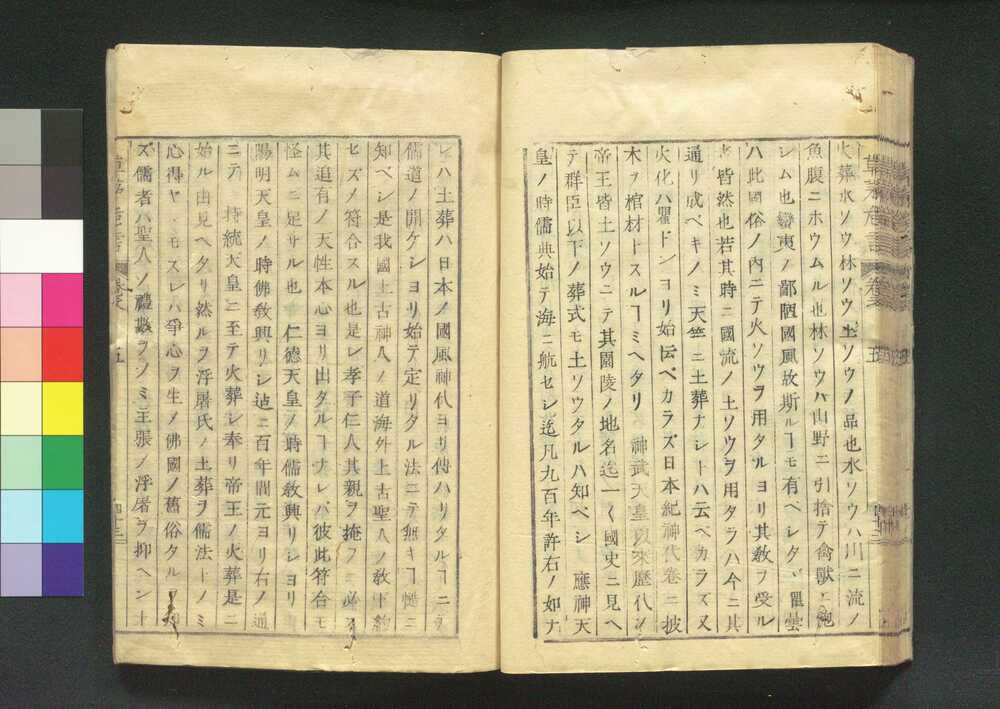 火葬水ソウ林ソウ土ソウノ品也水ソウハ川ニ流ノ
魚腹ニホウムル也林ソウハ山野ニ引捨テ禽獸ニ飽
シム也蠻夷ノ鄙陋國風故斯ルヿモ有ベシタヾ瞿曇
ハ此國俗ノ内ニテ火ソウヲ用タルヨリ其教ヲ受ル
者皆然也若其時ニ國流ノ土ソウヲ用タラハ今ニ其
通リ成ベキノミ天竺ニ土葬ナシトハ云ベカラズ又
火化ハ瞿ドンヨリ始云ベカラズ日本紀神代卷ニ披
木ヲ棺材トスルヿミヘタリ 神武天皇以來歷代ノ
帝王皆土ソウニテ其園陵ノ地名迄一〱國史ニ見ヘ
テ群臣以下ノ葬式モ土ソウタルハ知ベシ 應神天
皇ノ時儒典始テ海ニ航セシ迄凡九百年許右ノ如ナ
レハ土葬ハ日本ノ國風神代ヨリ傳ハリタルヿニテ
儒道ノ開ケシヨリ始テ定リタル法ニテ無キヿ慥ニ
知ベシ是我國上古神人ノ道海外上古聖人ノ教ト約
セズメ符合スル也是レ孝子仁人其親ヲ掩フニ必ス
其道有ノ天性本心ヨリ出タルヿナレバ彼此符合モ
怪ムニ足サル也 仁德天皇ノ時儒教興リシヨリ
陽明天皇ノ時佛教興リシ迠ニ百年間元ヨリ右ノ通
ニテ 持統天皇ニ至テ火葬シ奉リ帝王ノ火葬是ニ
始ル由見ヘタリ然ルヲ浮屠氏ノ土葬ヲ儒法トノミ
心得ヤヽモスレハ爭心ヲ生ノ佛國ノ舊俗タル
ズ儒者ハ聖人ソ禮數ヲソミ主張ノ浮屠ヲ抑ヘント